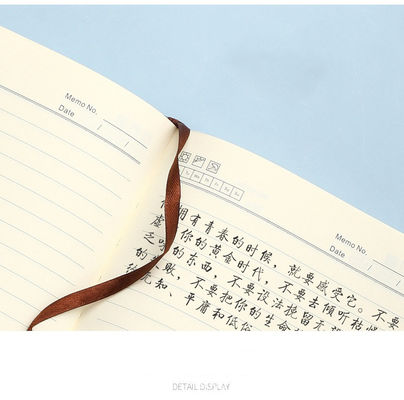 Memo No.
Date / /
Memo No.
Date / /
拥有青春的时候，就要感受它。不要
虚 你的黄金时代，不要去倾听枯燥
乏 的东西，不要设法挽留无
的失败，不要把你的生命
无知、平庸和低俗
DETAIL DISPLAY